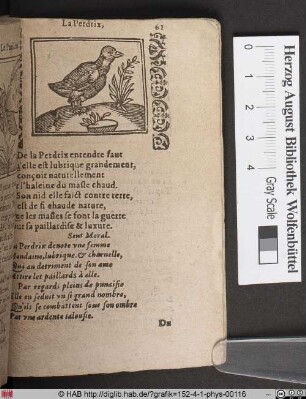 La Perdrix,
61
De la Perdrix entendre faut
elle est lubrique grandement,
conçoit naturellement
l'haleine du masle chaud.
Son nid elle faict contre terre,
est de si chaude nature,
que les masles se font la guerre
sa paillardise & luxure.
Sens Moral.
La Perdrix denote vne femme
lubrique, & charnelle,
au detriment de son ame
Attire les paillards à elle.
Par regards pleins de
Elle en seduit vn si grand nombre,
Qu'ils se combattent sous son ombre
Par vne ardente ialousie.
De
Herzog August Bibliothek Wolfenbüttel
0
1
2
3
4
Gray Scale
© HAB http://diglib.hab.de/?grafik=152-4-1-phys-00116